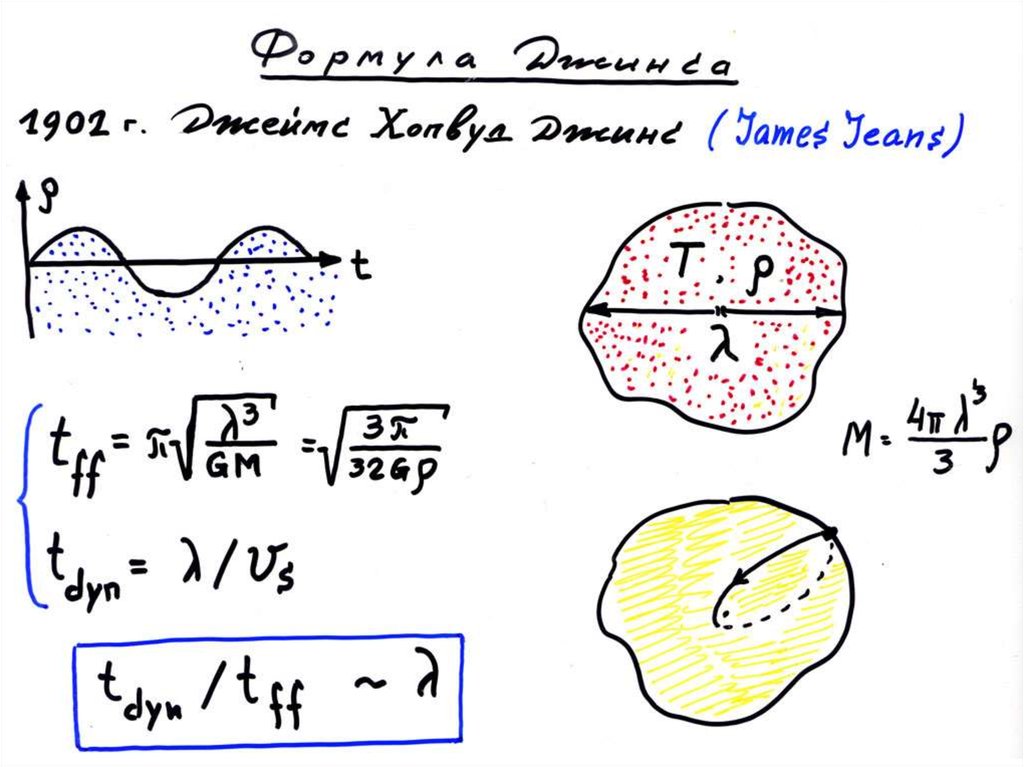 Формула Джинса
1902 г. Джеймс Хопвуд Джинс (James Jeans)
ρ
t
T, ρ
λ
t_ff = π√(λ³/GM) = √(3π/32Gρ)
M = 4πλ³/3 ρ
t_dyn = λ/υ_s
t_dyn / t_ff ~ λ